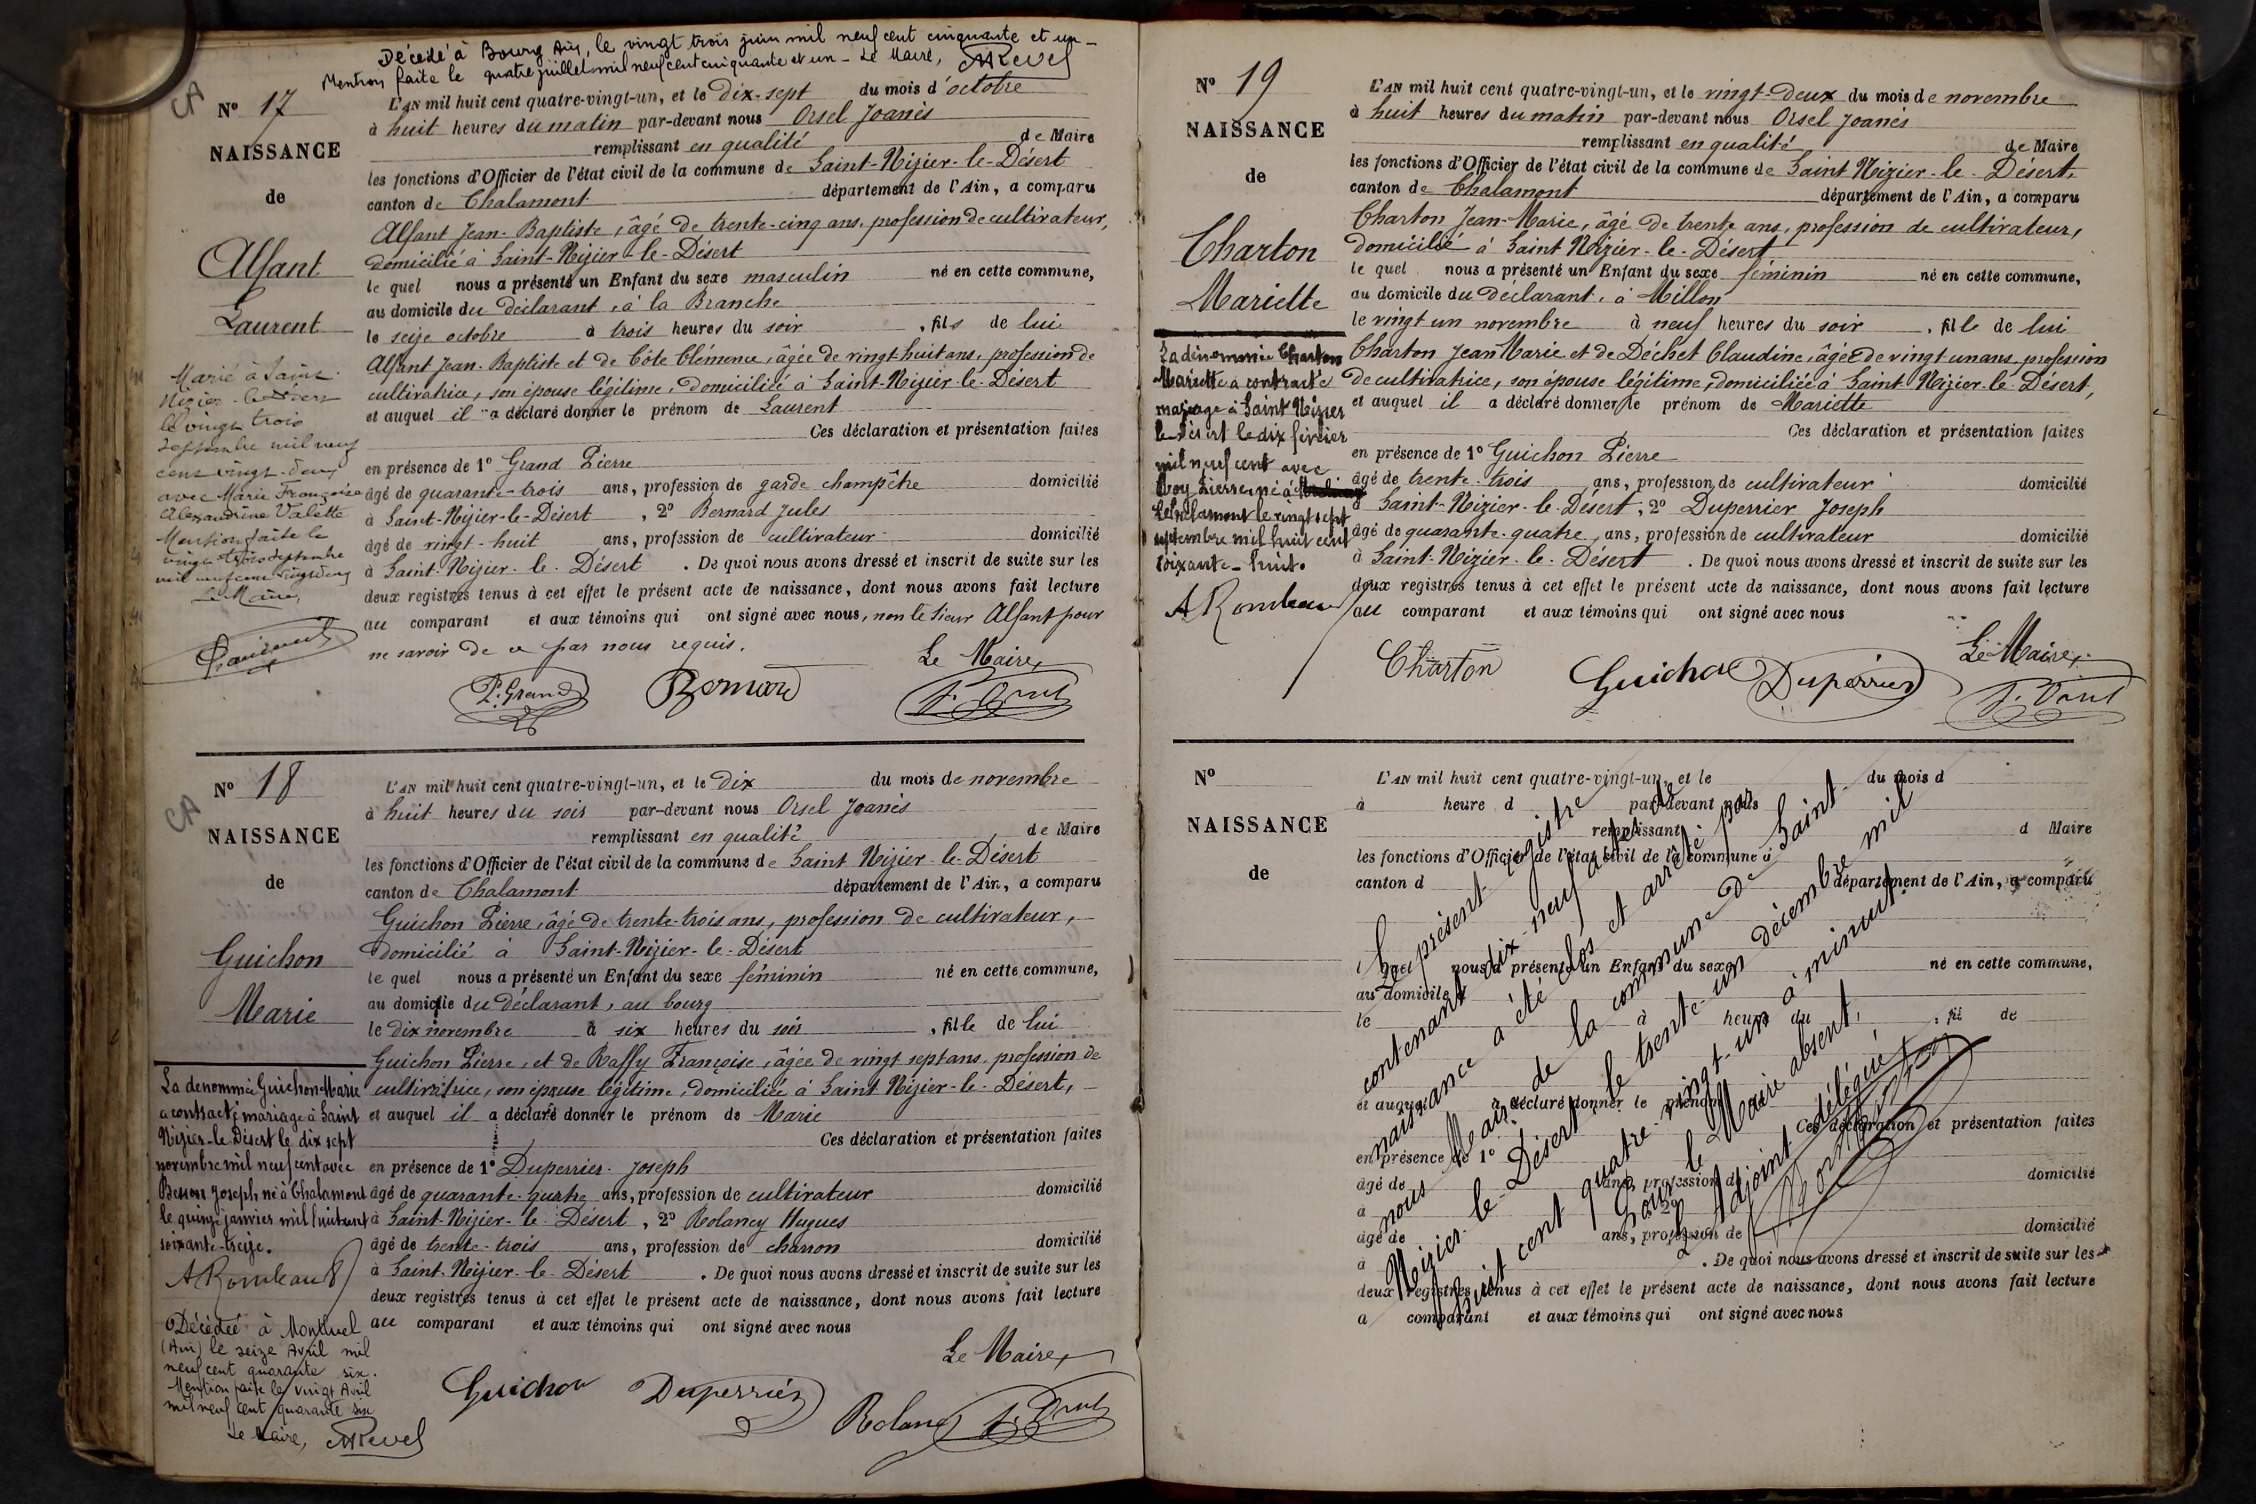 Décédé à Bourg Ain, le vingt trois juin mil neuf cent cinquante et un -
Mention faite le quatre juillet mil neuf cent cinquante et un - Le Maire, Revel
CA
N° 17
NAISSANCE
de
Alfant
Laurent
Marié à Saint-
Nizier-le-Désert
le vingt trois
septembre mil neuf
cent vingt-deux
avec Marie Françoise
Alexandrine Valette
Mention faite le
vingt trois septembre
mil neuf cent vingt deux
Le Maire,
L'AN mil huit cent quatre-vingt-un, et le dix-sept du mois d'octobre
à huit heures du matin par-devant nous Orsel Joanès
remplissant en qualité de Maire
les fonctions d'Officier de l'état civil de la commune de Saint-Nizier-le-Désert
canton de Chalamont département de l'Ain, a comparu
Alfant Jean-Baptiste, âgé de trente-cinq ans, profession de cultivateur,
domicilié à Saint-Nizier-le-Désert
le quel nous a présenté un Enfant du sexe masculin né en cette commune,
au domicile du déclarant, à la Branche
le seize octobre à trois heures du soir, fils de lui
Alfant Jean-Baptiste et de Côte Clémence, âgée de vingt huit ans, profession de
cultivatrice, son épouse légitime, domiciliée à Saint-Nizier-le-Désert
et auquel il a déclaré donner le prénom de Laurent
Ces déclaration et présentation faites
en présence de 1° Grand Pierre
âgé de quarante-trois ans, profession de garde champêtre domicilié
à Saint-Nizier-le-Désert, 2° Bernard Jules
âgé de vingt-huit ans, profession de cultivateur domicilié
à Saint-Nizier-le-Désert. De quoi nous avons dressé et inscrit de suite sur les
deux registres tenus à cet effet le présent acte de naissance, dont nous avons fait lecture
au comparant et aux témoins qui ont signé avec nous, non le sieur Alfant pour
ne savoir de ce par nous requis.
Le Maire,
P. Grand Bernard
CA
N° 18
NAISSANCE
de
Guichon
Marie
La dénommée Guichon Marie
a contracté mariage à Saint
Nizier-le-Désert le dix sept
novembre mil neuf cent avec
Besson Joseph, né à Chalamont
le quinze janvier mil huit cent
soixante-treize.
A Rombeau
Décédée à Montluel
(Ain) le seize Avril mil
neuf cent quarante six.
Mention faite le vingt Avril
mil neuf cent quarante six
Le Maire, Revel
L'AN mil huit cent quatre-vingt-un, et le dix du mois de novembre
à huit heures du soir par-devant nous Orsel Joanès
remplissant en qualité de Maire
les fonctions d'Officier de l'état civil de la commune de Saint Nizier-le-Désert
canton de Chalamont département de l'Ain, a comparu
Guichon Pierre, âgé de trente-trois ans, profession de cultivateur,
domicilié à Saint-Nizier-le-Désert
le quel nous a présenté un Enfant du sexe féminin né en cette commune,
au domicile du déclarant, au bourg
le dix novembre à six heures du soir, fille de lui
Guichon Pierre, et de Raffy Françoise, âgée de vingt sept ans, profession de
cultivatrice, son épouse légitime, domiciliée à Saint Nizier-le-Désert,
et auquel il a déclaré donner le prénom de Marie
Ces déclaration et présentation faites
en présence de 1° Duperrier Joseph
âgé de quarante-quatre ans, profession de cultivateur domicilié
à Saint-Nizier-le-Désert, 2° Rolancy Hugues
âgé de trente-trois ans, profession de charron domicilié
à Saint-Nizier-le-Désert. De quoi nous avons dressé et inscrit de suite sur les
deux registres tenus à cet effet le présent acte de naissance, dont nous avons fait lecture
au comparant et aux témoins qui ont signé avec nous
Le Maire,
Guichon Duperrier
N° 19
NAISSANCE
de
Charton
Mariette
La dénommée Charton
Mariette a contracté
mariage à Saint Nizier
le Désert le dix février
mil neuf cent avec
Boy Pierre, né à
Chalamont le vingt sept
septembre mil huit cent
soixante-huit.
A Rombeau
L'AN mil huit cent quatre-vingt-un, et le vingt-deux du mois de novembre
à huit heures du matin par-devant nous Orsel Joanès
remplissant en qualité de Maire
les fonctions d'Officier de l'état civil de la commune de Saint Nizier-le-Désert,
canton de Chalamont département de l'Ain, a comparu
Charton Jean-Marie, âgé de trente ans, profession de cultivateur,
domicilié à Saint Nizier-le-Désert
le quel nous a présenté un Enfant du sexe féminin né en cette commune,
au domicile du déclarant, à Millon
le vingt un novembre à neuf heures du soir, fille de lui
Charton Jean Marie et de Déchet Claudine, âgée de vingt un ans, profession
de cultivatrice, son épouse légitime, domiciliée à Saint Nizier-le-Désert,
et auquel il a déclaré donner le prénom de Mariette
Ces déclaration et présentation faites
en présence de 1° Guichon Pierre
âgé de trente-trois ans, profession de cultivateur domicilié
à Saint-Nizier-le-Désert, 2° Duperrier Joseph
âgé de quarante-quatre, ans, profession de cultivateur domicilié
à Saint-Nizier-le-Désert. De quoi nous avons dressé et inscrit de suite sur les
deux registres tenus à cet effet le présent acte de naissance, dont nous avons fait lecture
au comparant et aux témoins qui ont signé avec nous
Le Maire,
Charton Guichon Duperrier
N°
NAISSANCE
de
L'AN mil huit cent quatre-vingt-un, et le du mois d
à heure d par-devant nous
remplissant d Maire
les fonctions d'Officier de l'état civil de la commune d
canton d département de l'Ain, a comparu
l quel nous a présenté un Enfant du sexe né en cette commune,
au domicile d
le à heure du, fil de
et auquel a déclaré donner le prénom
Ces déclaration et présentation faites
en présence de 1°
âgé de ans, profession de domicilié
à 2°
âgé de ans, profession de domicilié
à. De quoi nous avons dressé et inscrit de suite sur les
deux registres tenus à cet effet le présent acte de naissance, dont nous avons fait lecture
a comparant et aux témoins qui ont signé avec nous
Le présent registre
contenant dix-neuf actes de
naissance a été clos et arrêté par
nous Maire de la commune de Saint-
Nizier-le-Désert, le trente-un décembre mil
huit cent quatre-vingt-un à minuit.
Pour le Maire absent,
L'Adjoint délégué,